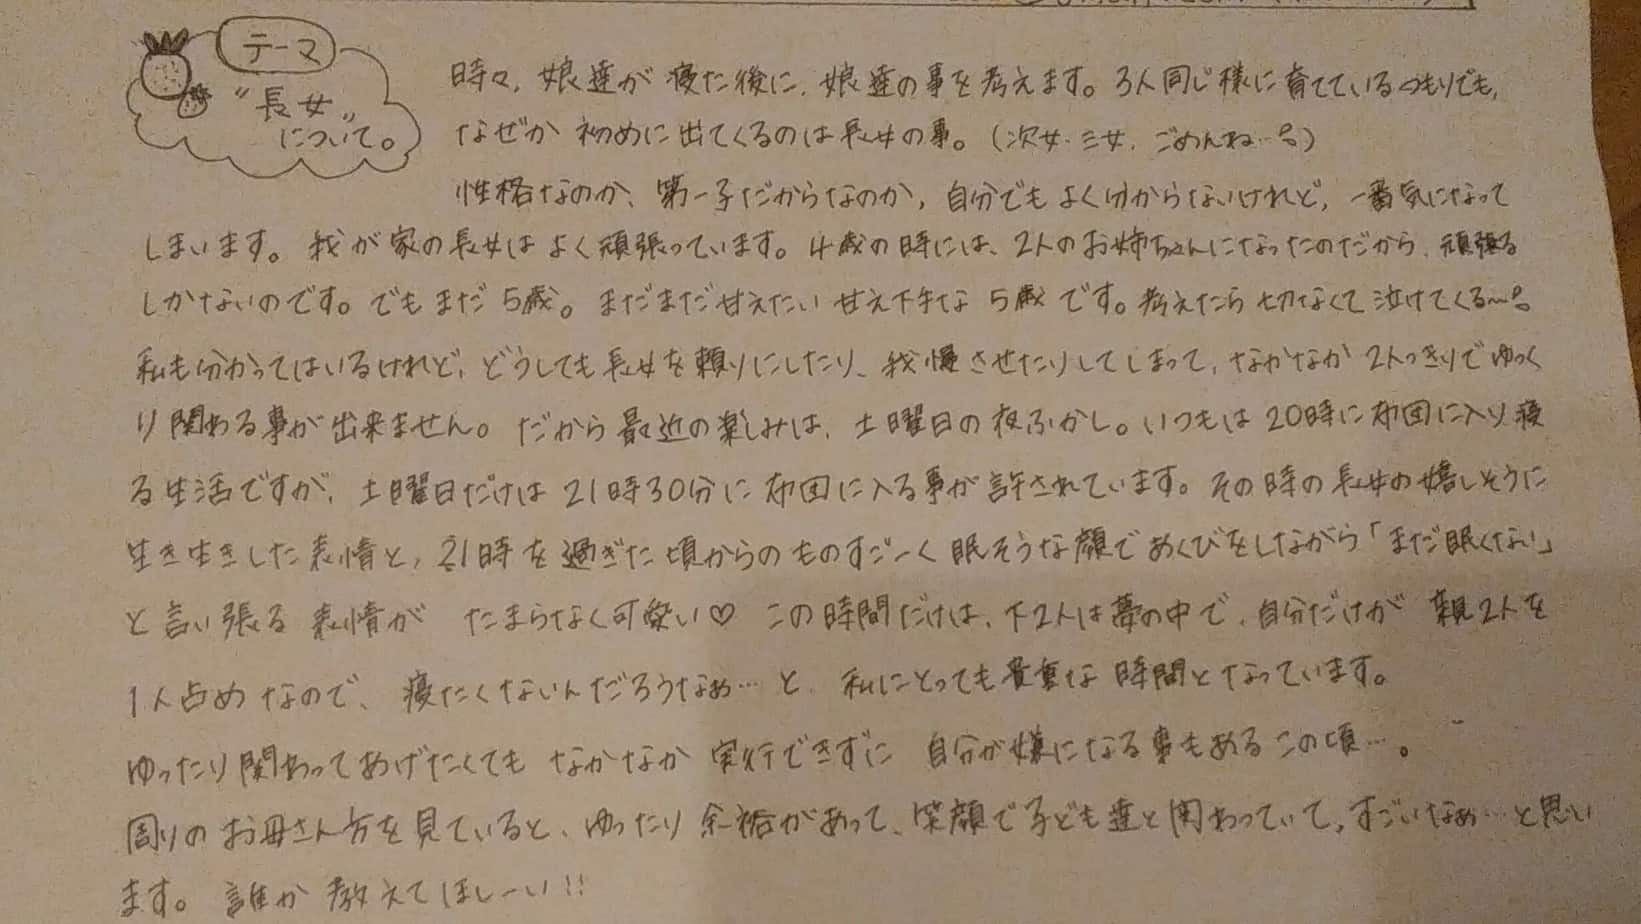 テーマ
"長女"
について。
時々、娘達が寝た後に、娘達の事を考えます。3人同じ様に育てているつもりでも、
なぜか初めに出てくるのは長女の事。(次女・三女、ごめんね…。)
性格なのか、第一子だからなのか、自分でもよく分からないけれど、一番気になって
しまいます。我が家の長女はよく頑張っています。4歳の時には、2人のお姉ちゃんになったのだから、頑張る
しかないのです。でもまだ5歳。まだまだ甘えたい甘え下手な5歳です。考えたら切なくて泣けてくる〜。
私も分かってはいるけれど、どうしても長女を頼りにしたり、我慢させたりしてしまって、なかなか2人っきりでゆっく
り関わる事が出来ません。だから最近の楽しみは、土曜日の夜ふかし。いつもは20時に布団に入り寝
る生活ですが、土曜日だけは21時30分に布団に入る事が許されています。その時の長女の嬉しそうに
生き生きした表情と、21時を過ぎた頃からのものすごーく眠そうな顔であくびをしながら「まだ眠くない」
と言い張る表情がたまらなく可愛い♡ この時間だけは、下2人は夢の中で、自分だけが親2人を
1人占めなので、寝たくないんだろうなぁ…と、私にとっても貴重な時間となっています。
ゆったり関わってあげたくてもなかなか実行できずに自分が嫌になる事もあるこの頃…。
周りのお母さん方を見ていると、ゆったり余裕があって、笑顔で子ども達と関わっていて、すごいなぁ…と思い
ます。誰か教えてほしーい!!